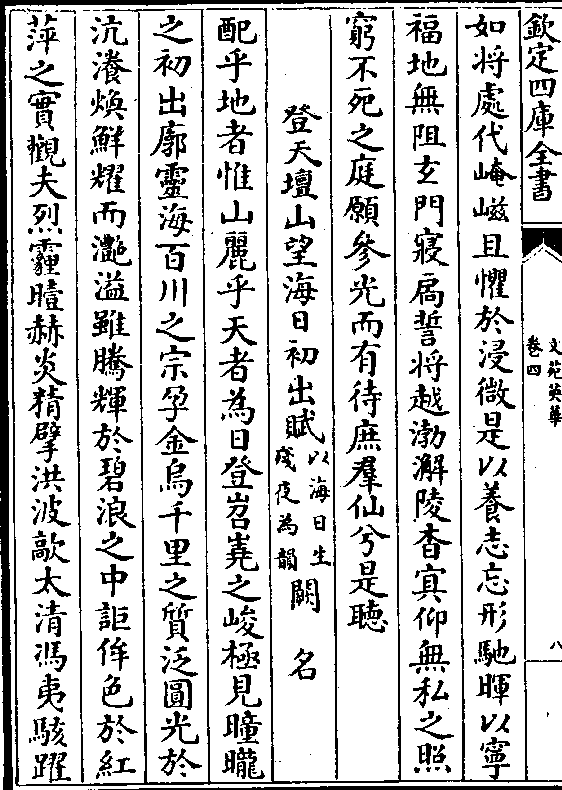 欽定四庫全書
文苑英華
卷四
八
如將處代崦嵫且懼於浸微是以養志忘形馳暉以寧
福地無阻玄門寢扃誓將越渤澥陵杳冥仰無私之照
窮不死之庭願參光而有待庶羣仙兮是聽
登天壇山望海日初出賦以海日生殘夜為韻闕名
配乎地者惟山麗乎天者為日登岧嶤之峻極見曈曨
之初出廓靈海百川之宗孕金烏千里之質泛圓光於
沆瀁煥鮮耀而灔溢雖騰輝於碧浪之中詎侔色於紅
萍之實觀夫烈霾曀赫炎精擘洪波歊太清馮夷駭躍